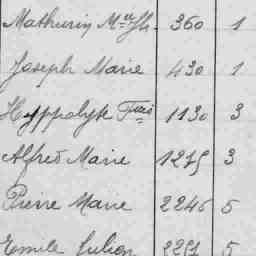 Mathurin Mie Jh. 360 1
Joseph Marie 430 1
Hyppolyte Fçois 1130 3
Alfred Marie 1275 3
Pierre Marie 2246 5
Emile Julien 2251 5